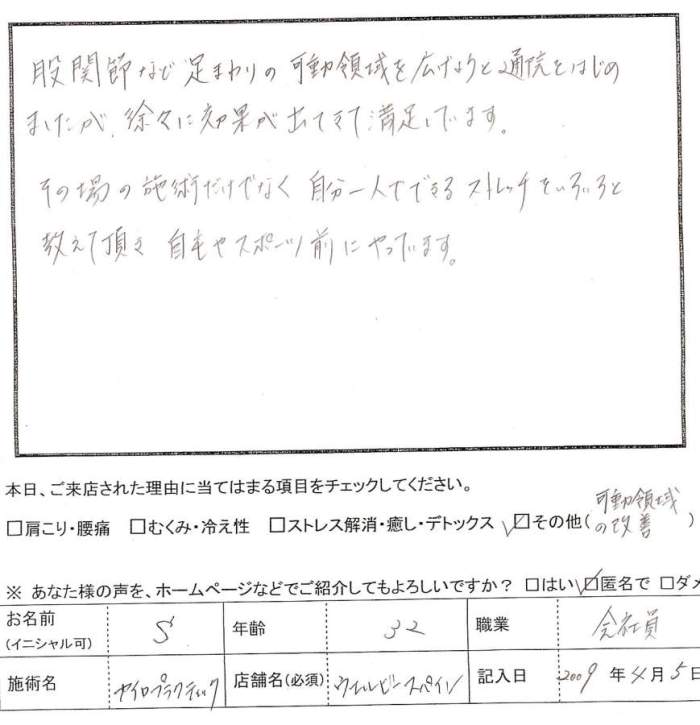 股関節など足まわりの可動領域を広げようと通院をはじめ
ましたが、徐々に効果が出てきて満足しています。
その場の施術だけでなく自分一人でできるストレッチをいろいろと
教えて頂き自宅やスポーツ前にやっています。
本日、ご来店された理由に当てはまる項目をチェックしてください。
□肩こり・腰痛 □むくみ・冷え性 □ストレス解消・癒し・デトックス ☑その他(可動領域の改善)
※ あなた様の声を、ホームページなどでご紹介してもよろしいですか？ □はい ☑匿名で □ダメ
お名前(イニシャル可) S 年齢 32 職業 会社員
施術名 カイロプラクティック 店舗名(必須) ウェルビースパイン 記入日 2009年4月5日